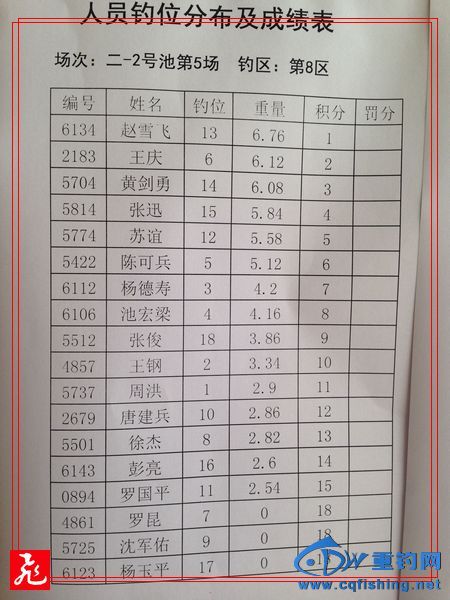 人员钓位分布及成绩表
场次：二-2号池第5场 钓区：第8区
编号 姓名 钓位 重量 积分 罚分
6134 赵雪飞 13 6.76 1
2183 王庆 6 6.12 2
5704 黄剑勇 14 6.08 3
5814 张迅 15 5.84 4
5774 苏谊 12 5.58 5
5422 陈可兵 5 5.12 6
6112 杨德寿 3 4.2 7
6106 池宏梁 4 4.16 8
5512 张俊 18 3.86 9
4857 王钢 2 3.34 10
5737 周洪 1 2.9 11
2679 唐建兵 10 2.86 12
5501 徐杰 8 2.82 13
6143 彭亮 16 2.6 14
0894 罗国平 11 2.54 15
4861 罗昆 7 0 18
5725 沈军佑 9 0 18
6123 杨玉平 17 0
重钓网
www.cqfishing.net